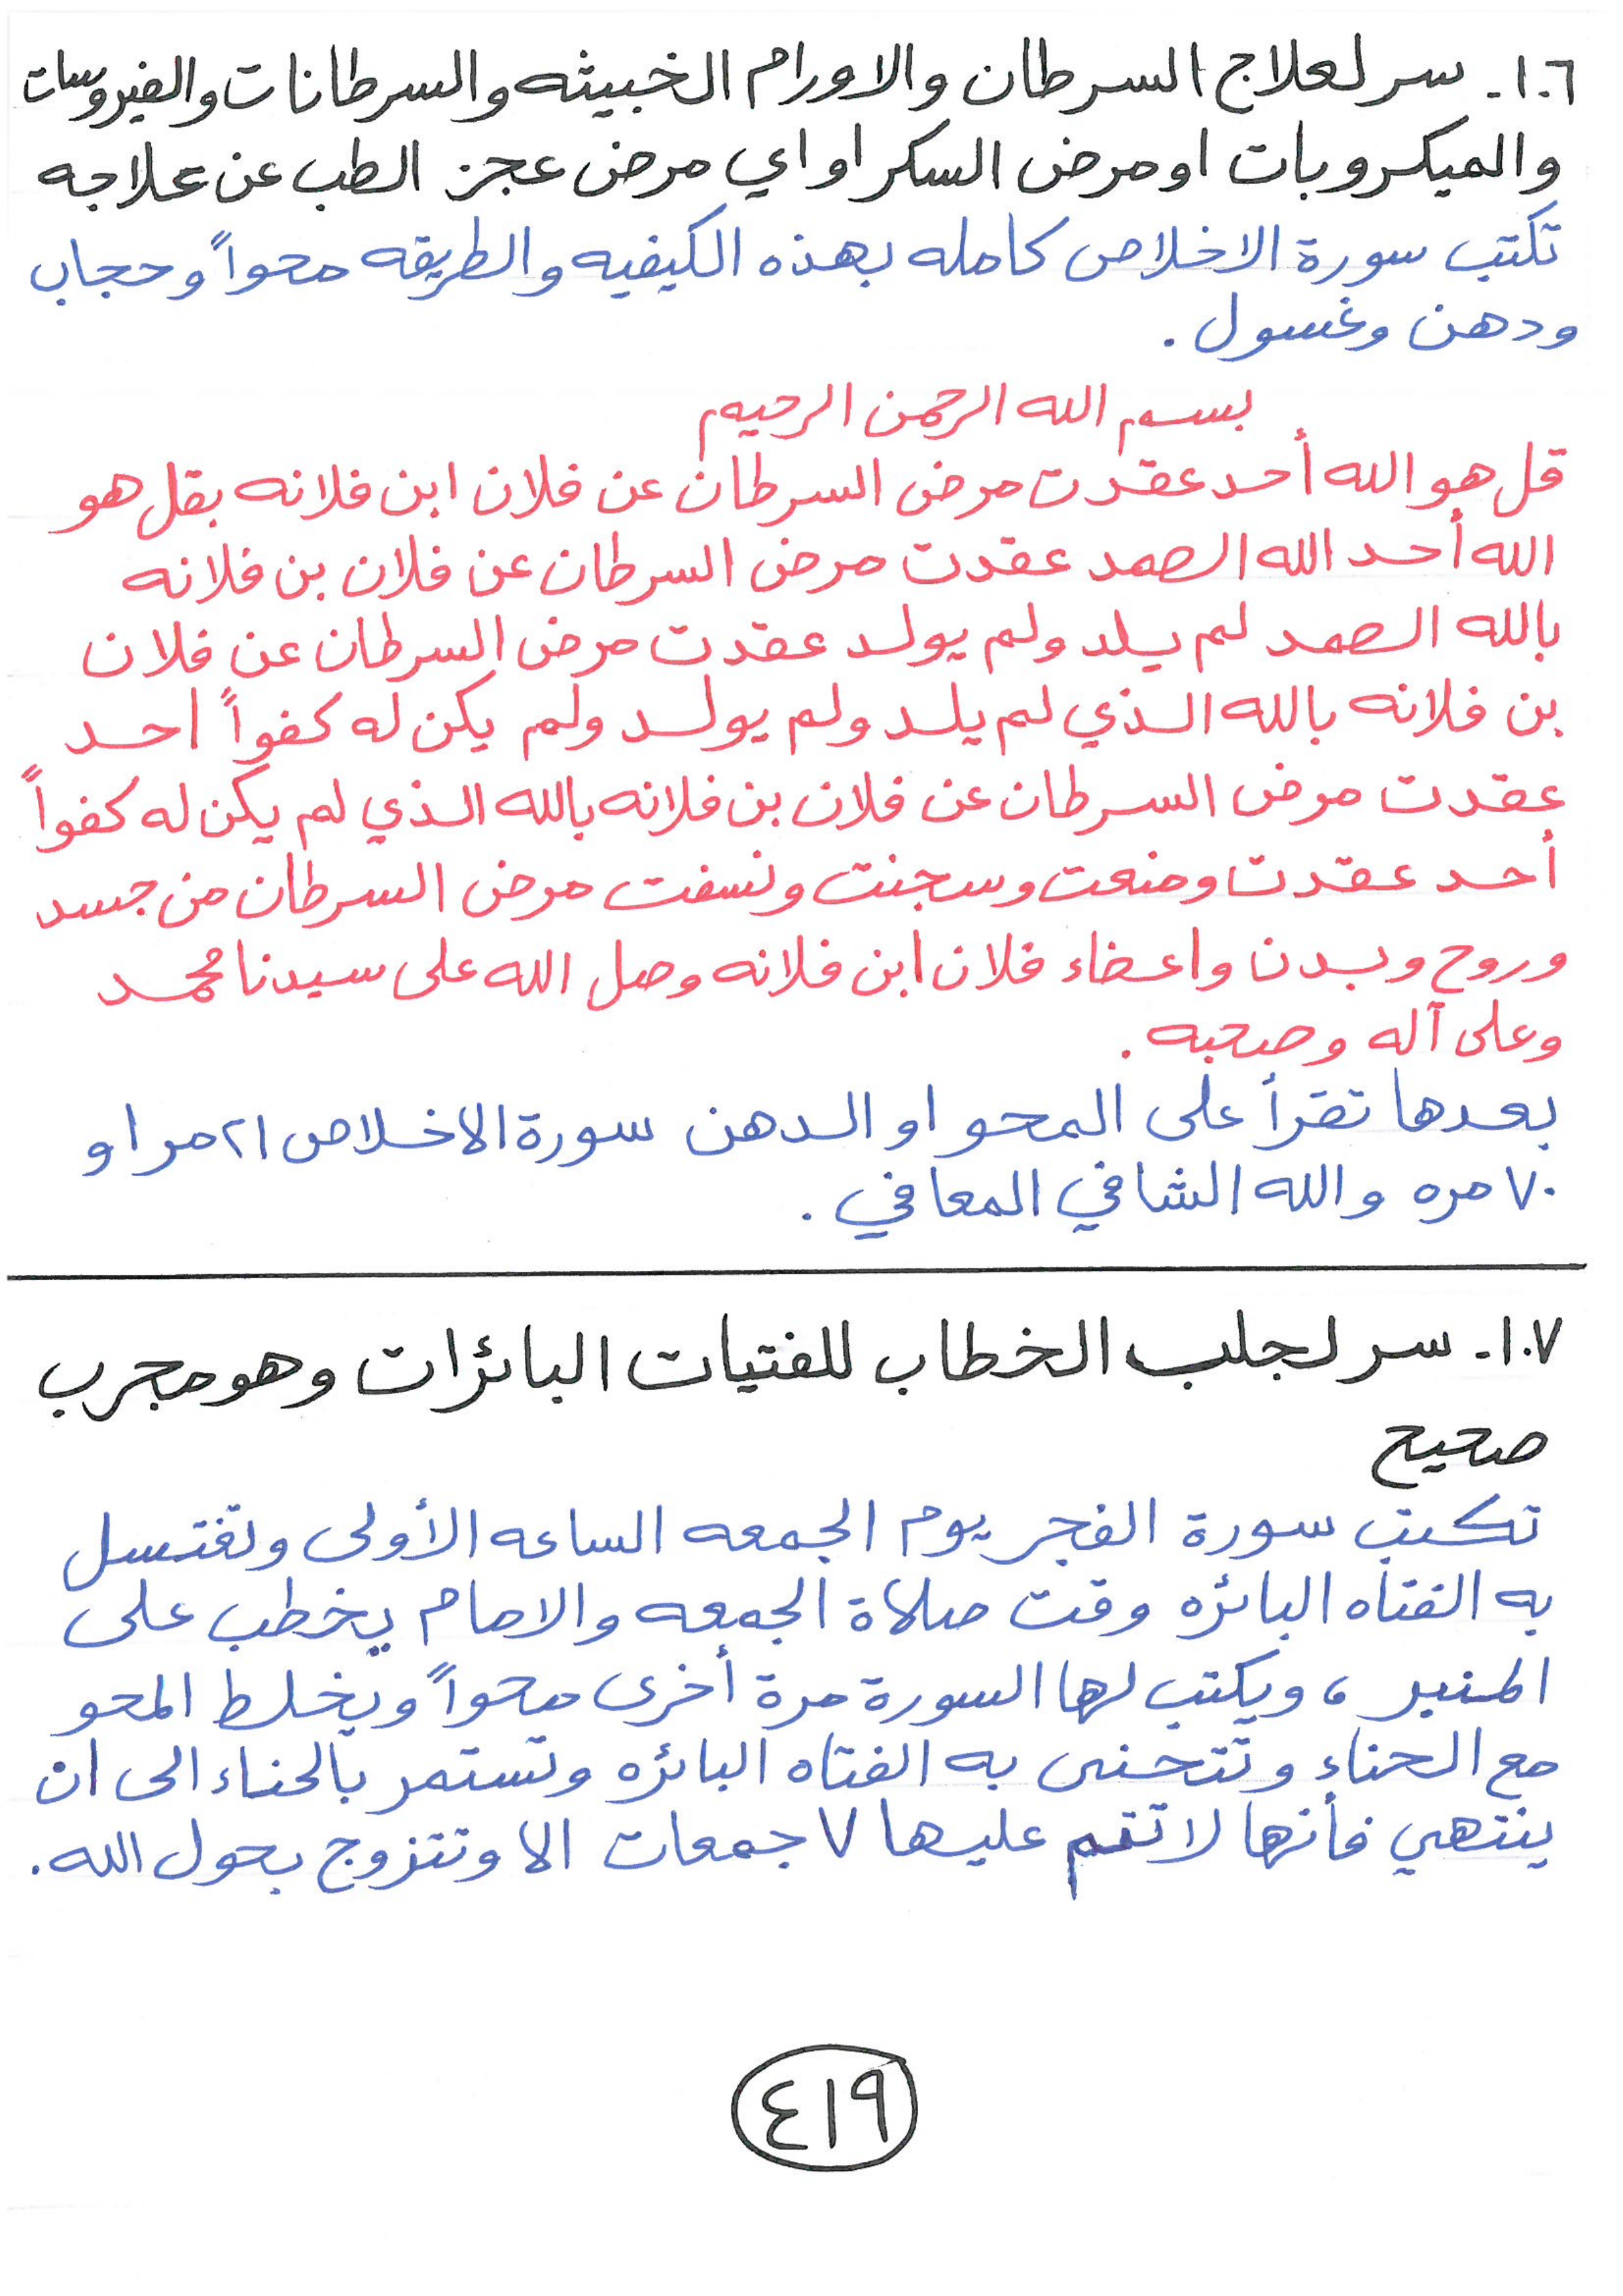 ١٠٦- سر لعلاج السرطان والاورام الخبيثه والسرطانات والفيروسات
والميكروبات او مرض السكر او اي مرض عجز الطب عن علاجه
تكتب سورة الاخلاص كامله بهذه الكيفيه والطريقه محواً وحجاب
ودهن وغسول .
بسم الله الرحمن الرحيم
قل هو الله أحد عقدت مرض السرطان عن فلان ابن فلانه بقل هو
الله أحد الله الصمد عقدت مرض السرطان عن فلان بن فلانه
بالله الصمد لم يلد ولم يولد عقدت مرض السرطان عن فلان
بن فلانه بالله الذي لم يلد ولم يولد ولم يكن له كفواً احد
عقدت مرض السرطان عن فلان بن فلانه بالله الذي لم يكن له كفواً
أحد عقدت ومنعت وسجنت ونسفت مرض السرطان من جسد
وروح وبدن واعضاء فلان ابن فلانه وصل الله على سيدنا محمد
وعلى آله وصحبه .
بعدها تقرأ على المحو او الدهن سورة الاخلاص ٢١ مر او
٧٠ مره والله الشافي المعافي .
١٠٧- سر لجلب الخطاب للفتيات البائرات وهو مجرب
صحيح
تكتب سورة الفجر يوم الجمعه الساعه الأولى وتغتسل
به الفتاه البائره وقت صلاة الجمعه والامام يخطب على
المنبر ، ويكتب لها السورة مرة أخرى محواً ويخلط المحو
مع الحناء وتتحنى به الفتاه البائره وتستمر بالحناء الى ان
ينتهي فأنها لا تتم عليها ٧ جمعات الا وتتزوج بحول الله .
٤١٩